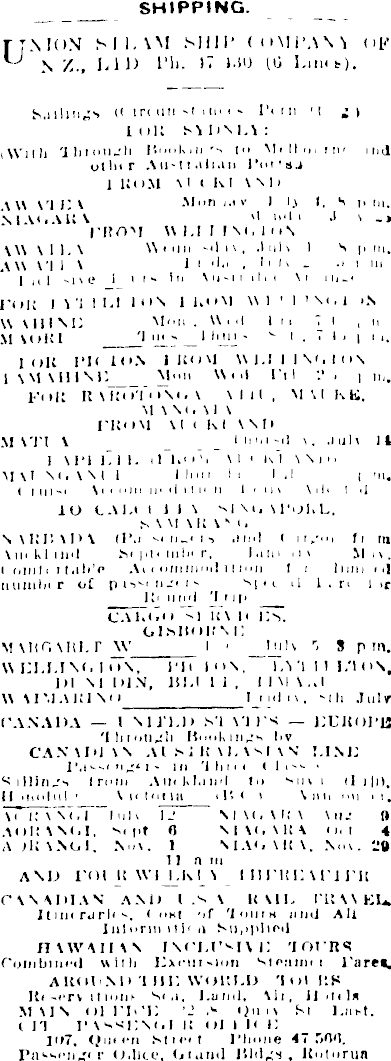 SHIPPING.
UNION STEAM SHIP COMPANY OF
N.Z., LTD Ph. 47 430 (6 Lines).
Sailings (Circumstances
FOR SYDNEY:
(With Through Bookings to Melbourne and
other Australian Ports.)
FROM AUCKLAND
AWATEA Monday, July 4, 8 p.m.
NIAGARA
FROM WELLINGTON
AWATEA Wednesday, July p.m.
AWATEA
FOR LYTTELTON FROM WELLINGTON
WAHINE Mon., Wed. Fri.
MAORI Tues. Thurs.
FOR PICTON FROM WELLINGTON
TAMAHINE Mon. Wed. Fri.
FOR RAROTONGA, MAUKE,
MANGAIA
FROM AUCKLAND
MATUA Thursday, July 14
PAPEETE (FROM AUCKLAND)
MAUNGANUI
Cruise Accommodation
TO CALCUTTA, SINGAPORE,
SAMARANG
NARBADA (Passengers and Cargo) from
Auckland September, January, May.
Comfortable Accommodation for limited
number of passengers Special Fare for
Round Trip
CARGO SERVICES.
GISBORNE
MARGARET W July 5 8 p.m.
WELLINGTON, PICTON, LYTTELTON,
DUNEDIN, BLUFF, TIMARU
WAIMARINO Friday, 8th July
CANADA — UNITED STATES — EUROPE
Through Bookings by
CANADIAN AUSTRALASIAN LINE
Passengers in Three Classes
Sailings from Auckland to Suva (Fiji),
Honolulu Victoria (B.C.) Vancouver.
AORANGI July 12 NIAGARA Aug 9
AORANGI, Sept 6 NIAGARA Oct 4
AORANGI, Nov. 1 NIAGARA, Nov. 29
11 a m
AND FOUR WEEKLY THEREAFTER
CANADIAN AND U.S.A. RAIL TRAVEL.
Itineraries, Cost of Tours and All
Information Supplied
HAWAIIAN INCLUSIVE TOURS
Combined with Excursion Steamer Fares.
AROUND THE WORLD TOURS
Reservations Sea, Land, Air, Hotels
MAIN OFFICE Quay St. East.
CITY PASSENGER OFFICE
107, Queen Street Phone 47,566.
Passenger Office, Grand Bldgs., Rotorua